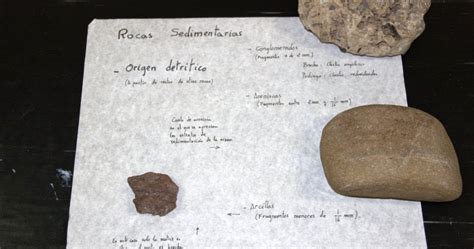 Rocas Sedimentarias
- Origen detrítico
(A partir de restos de otras rocas)
- Conglomerados
(Fragmentos > de 2 mm)
Brecha: Cantos angulosos
Pudinga: Cantos redondeados
- Areniscas
(Fragmentos entre 2 mm y 1/16 mm)
Canto de arenisca
en el que se aprecian
los estratos de
sedimentación de la misma
→
← - Arcillas
(Fragmentos menores de 1/16 mm)
En este caso todo la matriz es